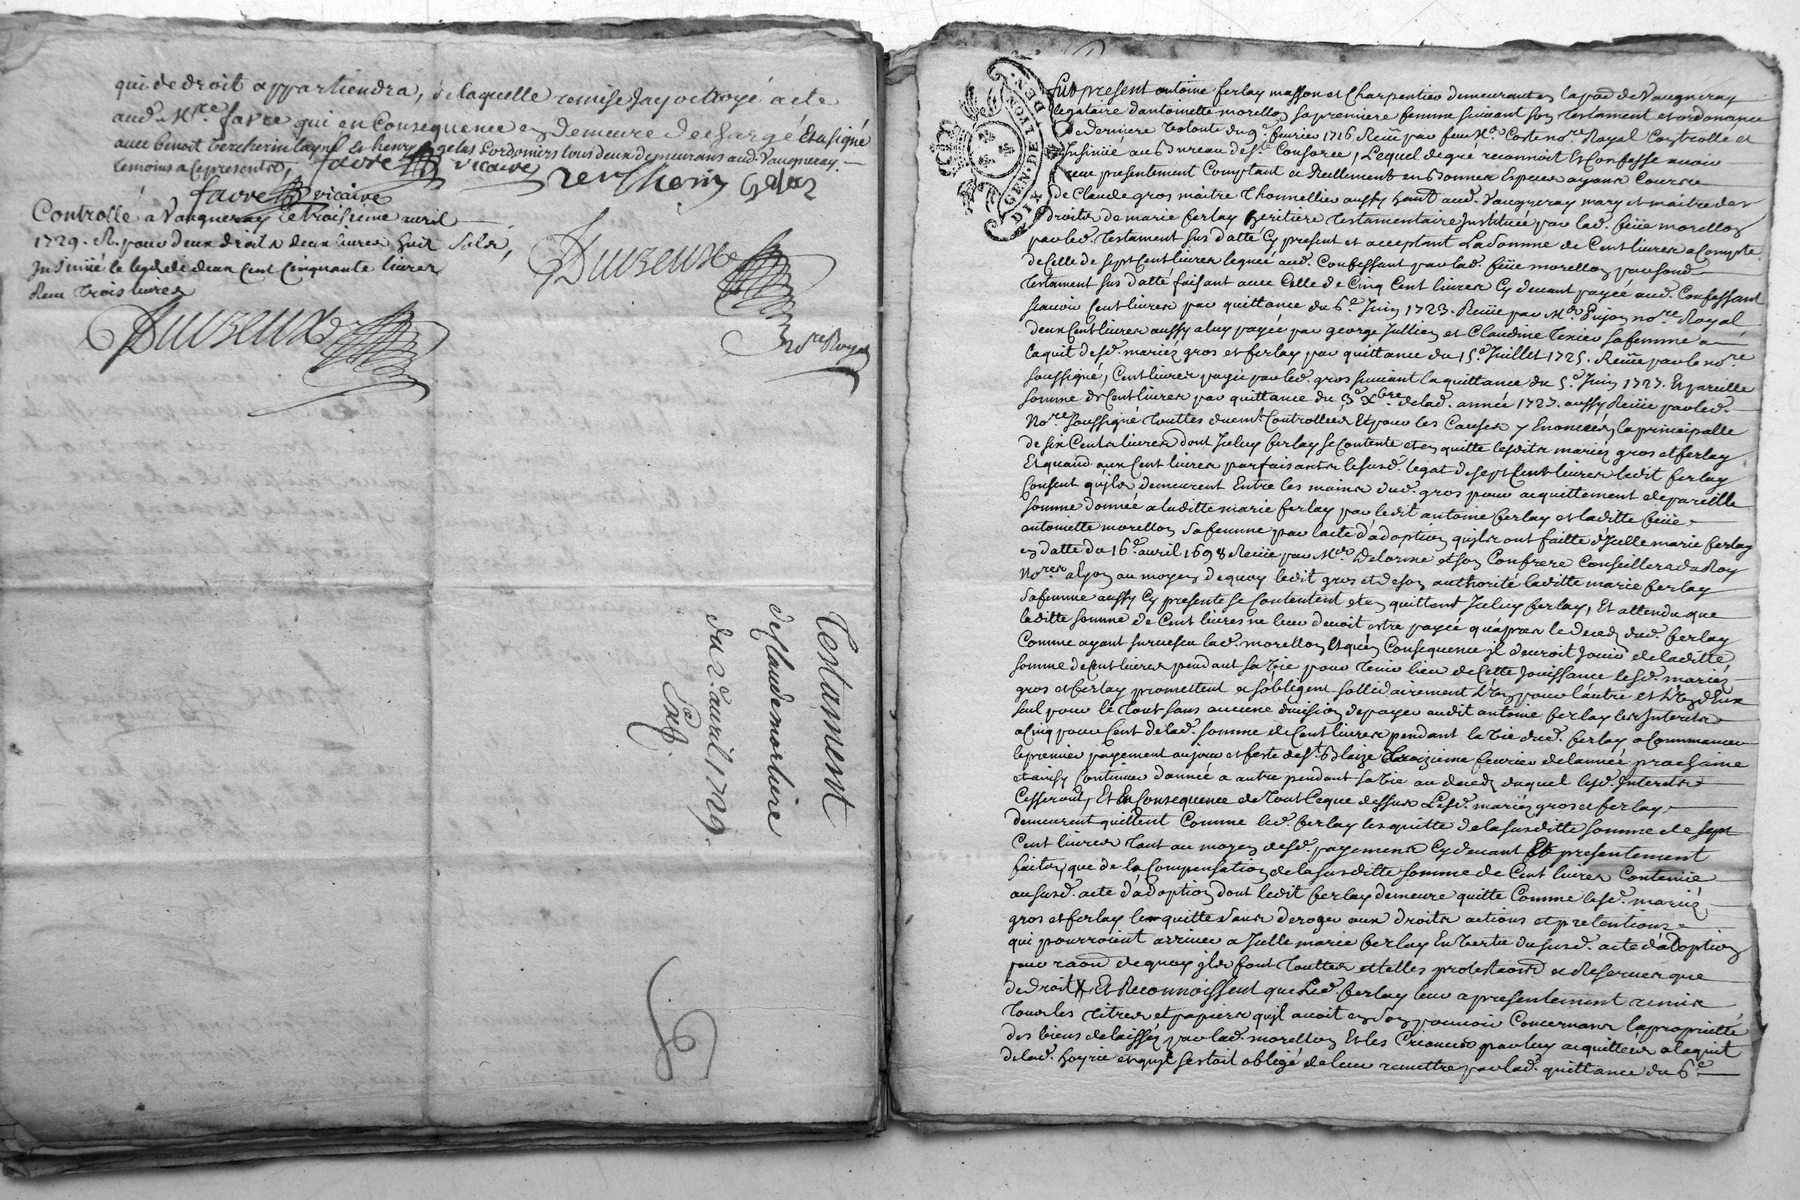 qui de droit appartiendra, de laquelle remise jay octroyé acte
aud. Mre. favre qui en consequence en demeure dechargé Et a signé
avec benoit vercherin layné et henry gelas Cordoniers tous deux demeurans aud. Vaugneray
temoins a ce presents
favre vicaire
favre vicaire
verchein Gelas
Controllé a Vaugneray le troisieme avril
1729. R. pour deux droits deux livres huit sols,
Insinüé le legs de deux Cent Cinquante livres
Reçu trois livres
Duvzeux
Duvzeux
nore Royal
Testament
de Claude morliere
du 2e. avril 1729.
Exp.
GEN. DE LYON. DIX DEN.
Fut present antoine ferlay masson et Charpentier demeurant en la par. de Vaugneray
legataire d'antoinette morellon sa premiere femme suivant son testament et ordonance
de derniere Volonté du 9e. fevrier 1716. Reçüe par feu Me. Coste nore Royal Controllé et
Insinüé au Bureau de Ste Consorce, Lequel de gré reconnoit Et Confesse avoir
reçu presentement Comptant et Reellement en bonnes Especes ayans Cours
de Claude gros maitre Thonnellier aussy habt. aud. Vaugneray mary et maitre des
Droits de marie ferlay heritiere testamentaire Instituée par lad. feüe morellon
par led. Testament sus datté Cy present et acceptant La Somme de Cent livres a Compte
de Celle de sept Cent livres leguée aud. Confessant par lad. feüe morellon par sond.
testament sus datté faisant avec Celle de Cinq Cent livres Cy devant payée aud. Confessant
scavoir Cent livres par quittance du 6e. Juin 1723. Reçüe par Me. Pujon nore Royal
deux Cent livres aussy a luy payée par george Jullien et Claudine Texier sa femme a
l'aquit desd. mariés gros et ferlay par quittance du 15e. Juillet 1725. Reçüe par le nore
soussigné, Cent livres payée par led. gros suivant la quittance du 5e. Juin 1727. Et pareille
somme de Cent livres par quittance du 3e Xbre de lad. année 1727. aussy Reçüe par led.
Nore soussigné touttes duemt. Controllées Et pour les Causes y Enoncées, la principalle
de six Cents livres dont Iceluy ferlay se Contente et en quitte lesdits mariés gros et ferlay
Et quand aux Cent livres parfaisants le susd. legat de sept Cent livres ledit ferlay
Consent qu'ils demeurent Entre les mains dud. gros pour acquittement de pareille
somme donnée a laditte marie ferlay par ledit antoine ferlay et laditte feüe
antoinette morellon sa femme par l'acte d'adoption qu'ils ont faitte d'Icelle marie ferlay
en datte du 16e. avril 1698 Reçüe par Mrs Delorme et son Confrere Conseillers du Roy
Nores a Lyon au moyen de quoy ledit gros et de son authorité laditte marie ferlay
sa femme aussy Cy presente se Contentent et en quittent Iceluy ferlay, Et attendu que
laditte somme de Cent livres ne leur devoit estre payée qu'apres le deces dud. ferlay
Comme ayant survescu lad. morellon Et qu'en Consequence il devroit Jouir de laditte
somme de Cent livres pendant sa vie pour tenir lieu de cette Jouissance lesd. mariés
gros et ferlay promettent et s'obligent sollidairement l'un pour l'autre et l'un d'Eux
seul pour le tout sans aucune division de payer audit antoine ferlay les Interets
a Cinq pour Cent de lad. somme de Cent livres pendant la vie dud. ferlay a Commancer
le premier payement au jour et feste de St. Blaize troizieme fevrier de l'année prochaine
et ainsy Continuer d'année a autre pendant sa vie au deced duquel lesd. Interets
Cesseront, Et En Consequence de tout Ceque dessus Lesd. mariés gros et ferlay
demeurent quittent Comme led. ferlay les quitte de la susditte somme de sept
Cent livres tant au moyen desd. payemens Cy devant Et presentement
faits, que de la Compensation de la susditte somme de Cent livres Contenüe
au susd. acte d'adoption dont ledit ferlay demeure quitte Comme lesd. mariés
gros et ferlay len quitte sans deroger aux droits actions et pretentions
qui pourroient arriver a Icelle marie ferlay En vertu du susd. acte d'adoption
pour raon de quoy ils font touttes et telles protestaons et Reserves que
de droit X Et Reconnoissent que Led. ferlay leur a presentement remis
tous les titres et papiers qu'jl avoit en son pouvoir Concernans la proprieté
des biens delaissés par lad. morellon Et les Creances par luy acquittées a laquit
de lad. hoyrie et qu'jl sestoit obligé de leur remettre par lad. quittance du 6e